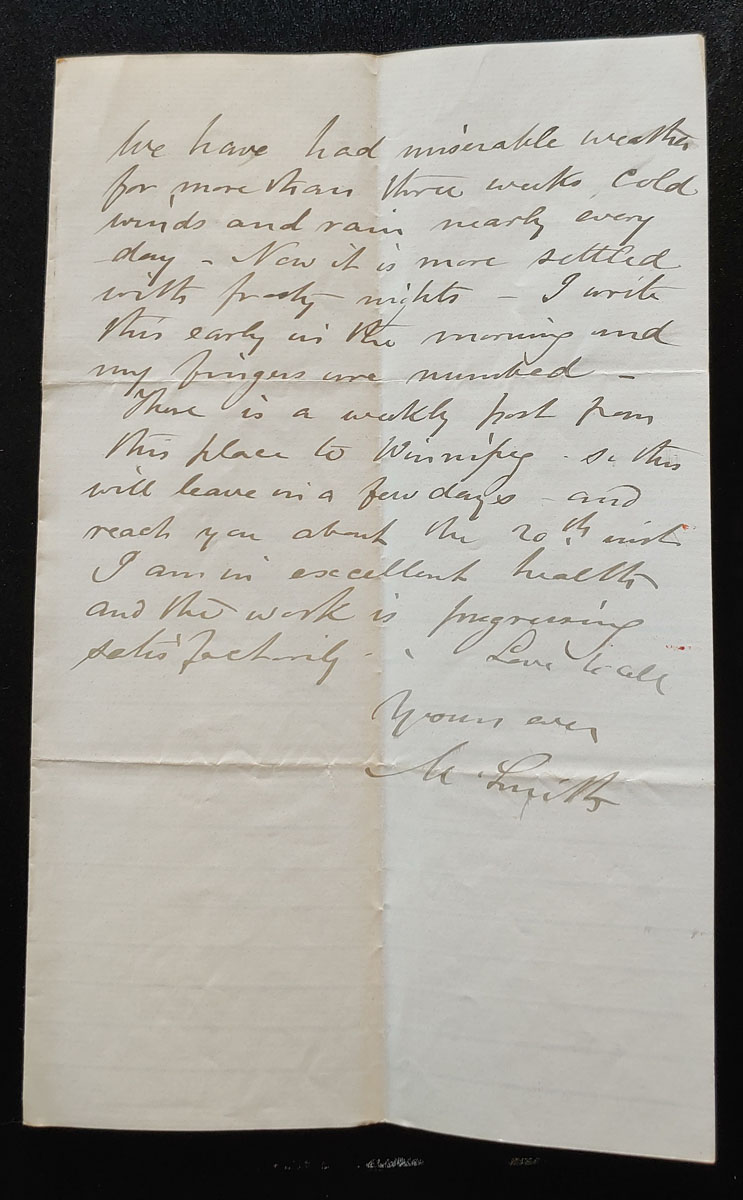 We have had miserable weather
for more than three weeks, Cold
winds and rain nearly every
day - Now it is more settled
with frosty nights - I write
this early in the morning and
my fingers are numbed -
There is a weekly post from
this place to Winnipeg - so this
will leave in a few days - and
reach you about the 20th inst
I am in excellent health
and the work is progressing
satisfactorily - Love to all
Yours ever
M. Smith